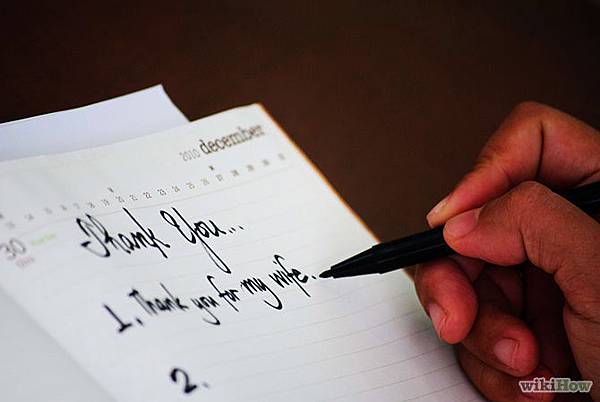 2010 december
30
Thank You...
1. Thank you for my wife.
2.
wikiHow